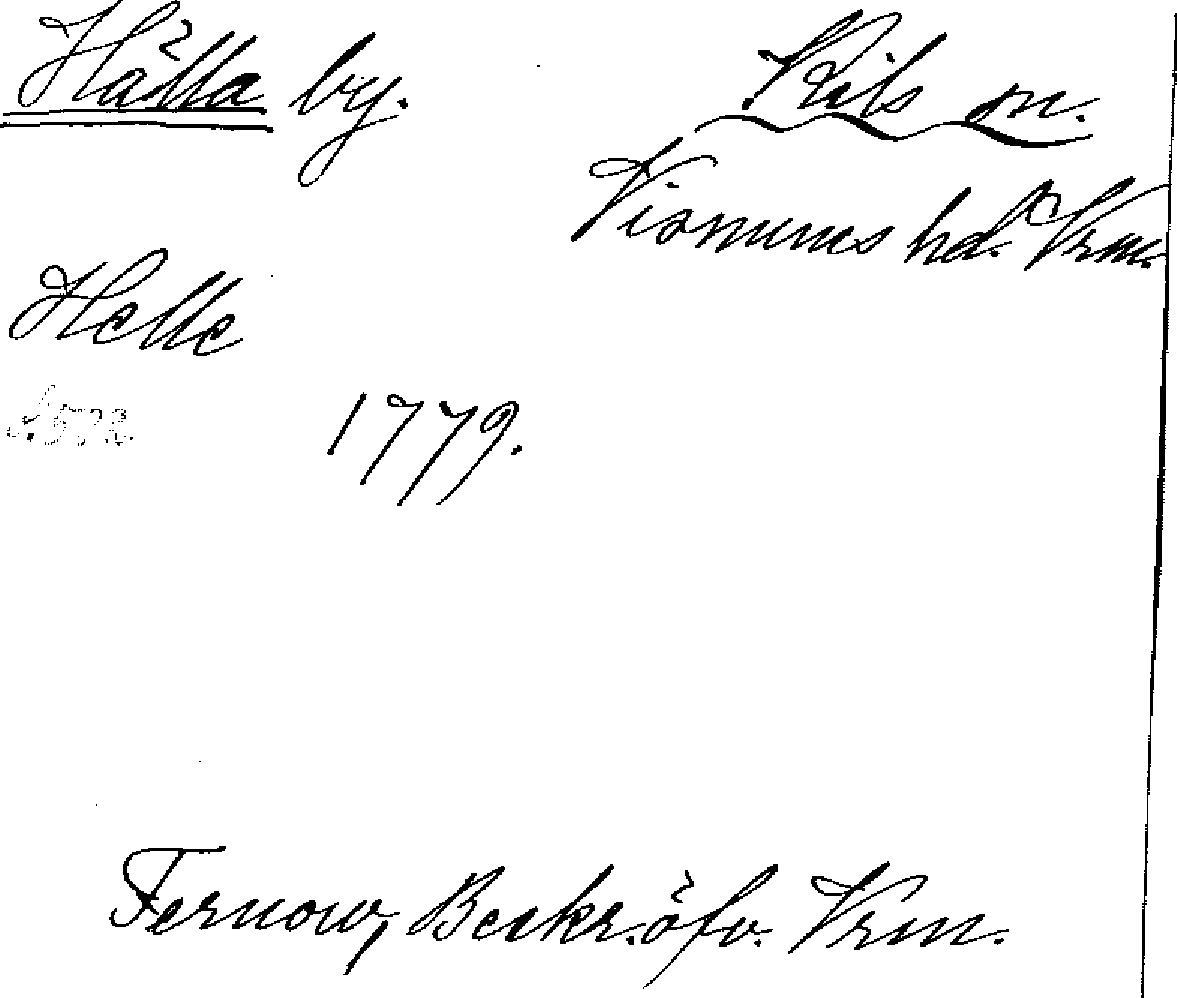 Hälla by.
Kils sn.
Visnums hd. Vrm.
Helle
1779.
Fernow, Beskr. öfv. Vrm.